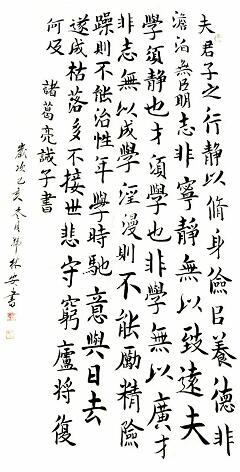 夫君子之行静以脩身儉㠯養德非
澹泊無㠯明志非寧靜無以致遠夫
學須静也才須學也非學無以廣才
非志無以成學淫漫則不能勵精險
躁則不能治性年與時馳意與日去
遂成枯落多不接世悲守窮廬將復
何及
諸葛亮誡子書
歲次己亥冬月林安書